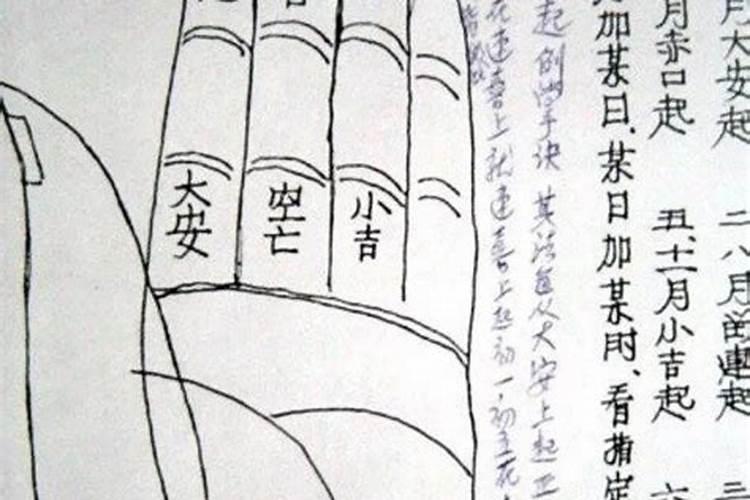 月大安起 二八月連起 三
月赤口起 五、十一月小吉起 六
加某日、某日加某时、看指定
起例手诀 其法每从大安上起
在速喜上就速喜上起初一，初五在
大安
空亡
小吉